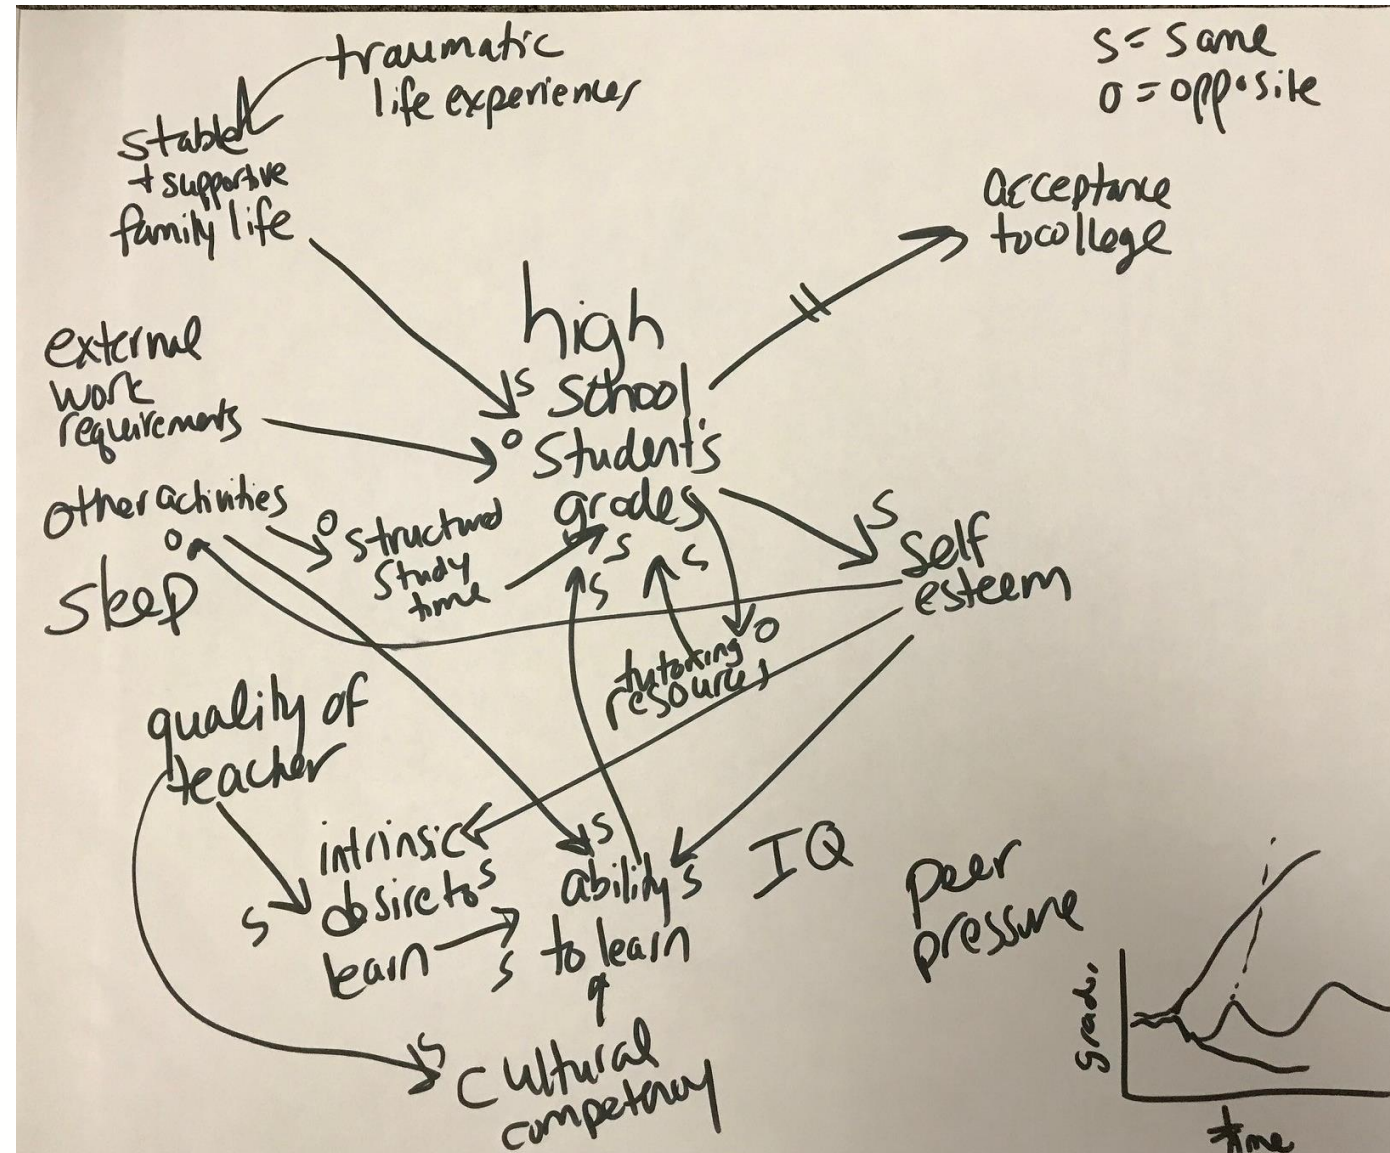 traumatic
life experiences
s = same
o = opposite
stable
+ supportive
family life
acceptance
to college
high
school
student's
grades
s
o
external
work
requirements
other activities
o
structured
study
time
s
s
s
s
self
esteem
o
sleep
o
tutoring
resources
quality of
teacher
intrinsic
desire to
learn
s
s
s
ability
to learn
s
s
IQ
peer
pressure
s
cultural
competency
grades
time